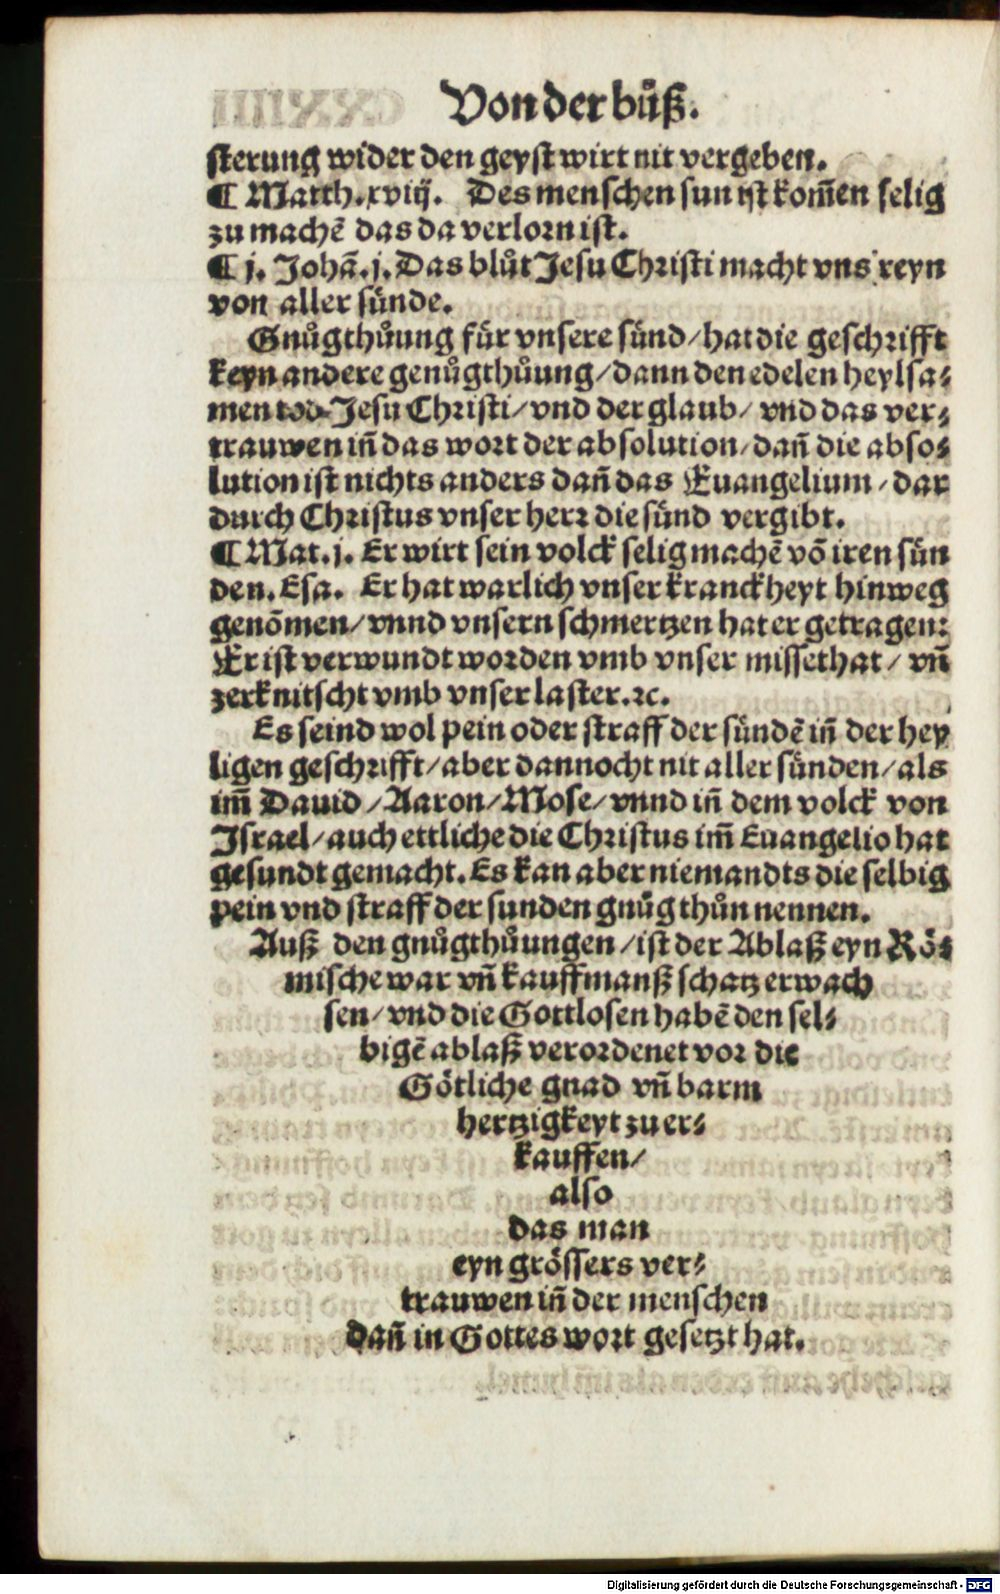 Von der bůß.
sterung wider den geyst wirt nit vergeben.
¶ Matth.xviij. Des menschen sun ist kom̃en selig
zu machẽ das da verlorn ist.
¶ j. Johã.j. Das blůt Jesu Christi macht vns reyn
von aller sünde.
Gnůgthůung für vnsere sünd/hat die geschrifft
keyn andere genůgthůung/dann den edelen heylsa⸗
men tod Jesu Christi/vnd der glaub/ vnd das ver⸗
trauwen iñ das wort der absolution/dañ die abso⸗
lution ist nichts anders dañ das Euangelium/dar
durch Christus vnser herr die sünd vergibt.
¶ Mat.j. Er wirt sein volck selig machẽ võ iren sün
den. Esa. Er hat warlich vnser kranckheyt hinweg
genõmen/vnnd vnsern schmertzen hat er getragen:
Er ist verwundt worden vmb vnser missethat/ vñ
zerknitscht vmb vnser laster.ꝛc.
Es seind wol pein oder straff der sündẽ iñ der hey
ligen geschrifft/aber dannocht nit aller sünden/als
im̃ Dauid/Aaron/Mose/vnnd iñ dem volck von
Israel/auch ettliche die Christus im̃ Euangelio hat
gesundt gemacht. Es kan aber niemandts die selbig
pein vnd straff der sunden gnůg thůn nennen.
Auß den gnůgthůungen/ist der Ablaß eyn Rö⸗
mische war vñ kauffmanß schatz erwach
sen/vnd die Gottlosen habẽ den sel⸗
bigẽ ablaß verordenet vor die
Götliche gnad vñ barm
hertzigkeyt zu er⸗
kauffen/
also
das man
eyn grössers ver⸗
trauwen iñ der menschen
dañ in Gottes wort gesetzt hat.
Digitalisierung gefördert durch die Deutsche Forschungsgemeinschaft - DFG